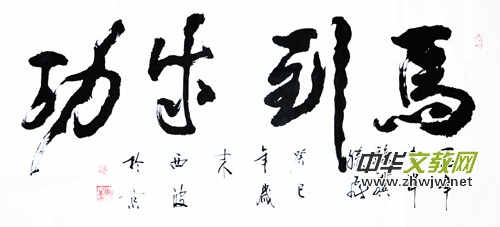 馬到成功
癸巳
年歲
末
西波
於京
中华文教网
www.zhwjw.net